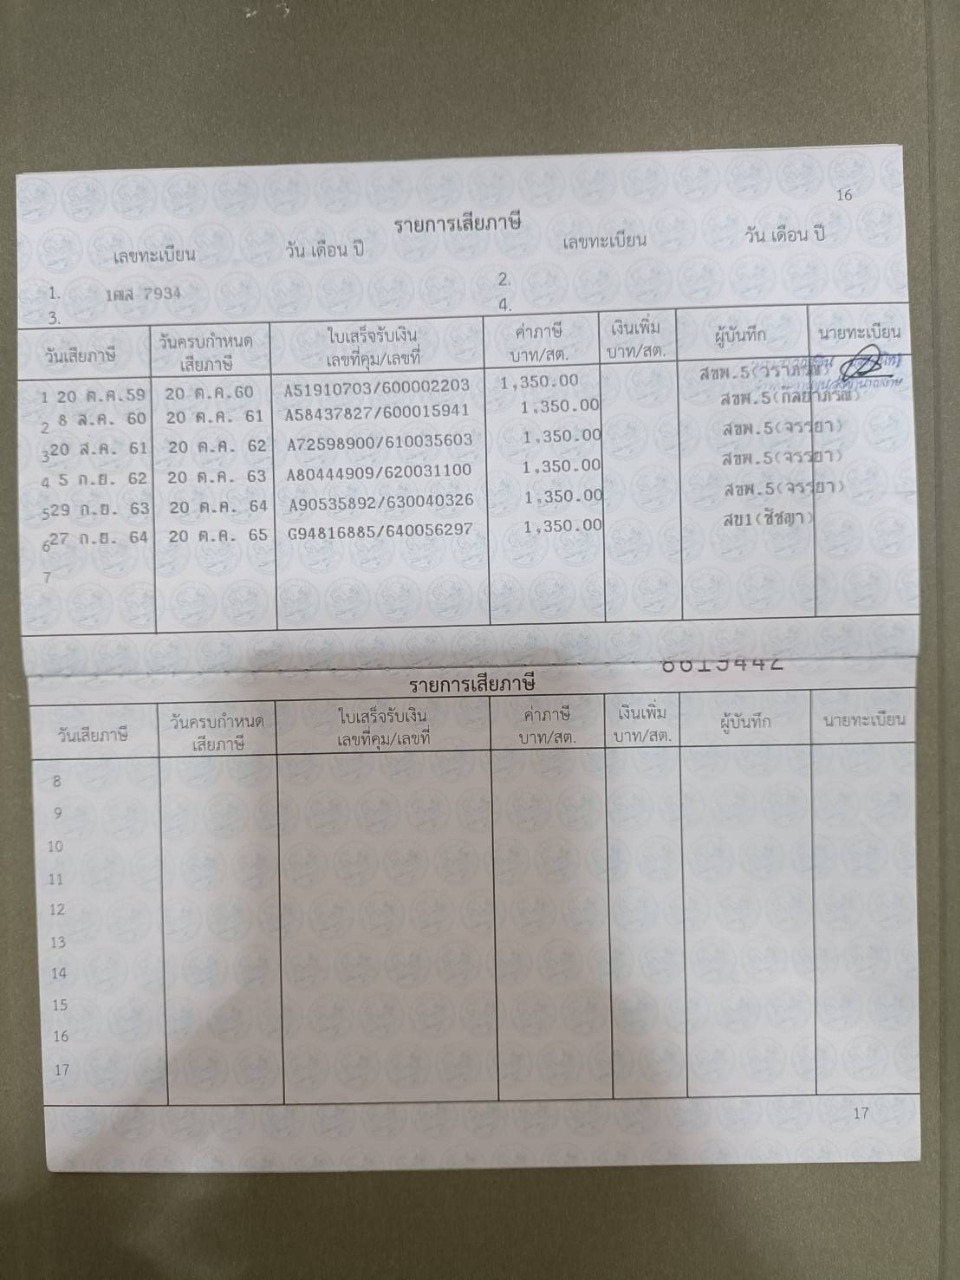 16
รายการเสียภาษี
เลขทะเบียน วัน เดือน ปี เลขทะเบียน วัน เดือน ปี
1. 1ฒส 7934 2.
3. 4.
วันเสียภาษี วันครบกำหนดเสียภาษี ใบเสร็จรับเงิน เลขที่คุม/เลขที่ ค่าภาษี บาท/สต. เงินเพิ่ม บาท/สต. ผู้บันทึก นายทะเบียน
1 20 ต.ค.59 20 ต.ค.60 A51910703/600002203 1,350.00 สขพ.5(วราภรณ์)
2 8 ส.ค. 60 20 ต.ค. 61 A58437827/600015941 1,350.00 สขพ.5(กัลยาภรณ์)
3 20 ส.ค. 61 20 ต.ค. 62 A72598900/610035603 1,350.00 สขพ.5(จรรยา)
4 5 ก.ย. 62 20 ต.ค. 63 A80444909/620031100 1,350.00 สขพ.5(จรรยา)
5 29 ก.ย. 63 20 ต.ค. 64 A90535892/630040326 1,350.00 สขพ.5(จรรยา)
6 27 ก.ย. 64 20 ต.ค. 65 G94816885/640056297 1,350.00 สข1(ชิชญา)
7
8615442
รายการเสียภาษี
วันเสียภาษี วันครบกำหนดเสียภาษี ใบเสร็จรับเงิน เลขที่คุม/เลขที่ ค่าภาษี บาท/สต. เงินเพิ่ม บาท/สต. ผู้บันทึก นายทะเบียน
8
9
10
11
12
13
14
15
16
17
17